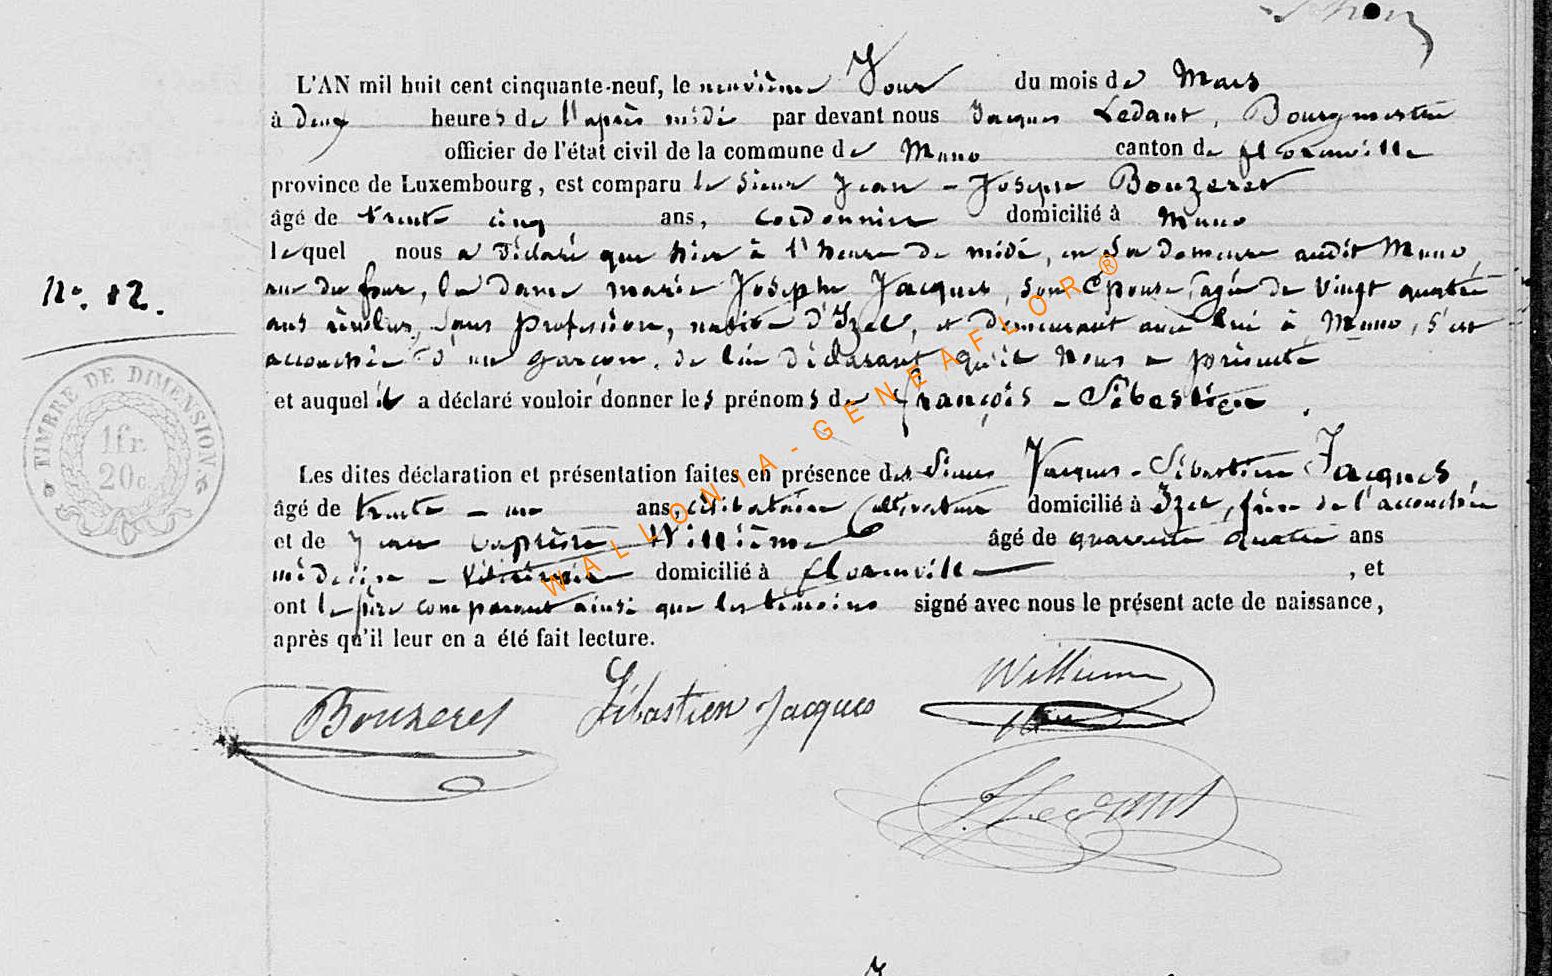 L'AN mil huit cent cinquante-neuf, le neuvième Jour du mois de Mars
à deux heures de l'après midi par devant nous Jacques Ledant, Bourgmestre
officier de l'état civil de la commune de Muno canton de florenville
province de Luxembourg, est comparu le sieur Jean-Joseph Bouzeret
âgé de trente cinq ans, cordonnier domicilié à Muno
lequel nous a déclaré que hier à l'heure de midi, en sa demeure audit Muno,
rue du four, la dame marie Josephe Jacques, son Epouse, agée de vingt quatre
ans révolus, sans profession, native d'Izel, et demeurant avec lui à Muno, s'est
accouchée d'un garçon, de lui déclarant qu'il nous a présenté
et auquel il a déclaré vouloir donner les prénoms de françois-Sébastien.
Les dites déclaration et présentation faites en présence des Sieurs Jacques-Sébastien Jacques
âgé de trente-un ans, célibataire Cultivateur domicilié à Izel, frère de l'accouchée
et de Jean baptiste Willième âgé de quarante quatre ans
médecin-vétérinaire domicilié à florenville, et
ont le père comparant ainsi que les témoins signé avec nous le présent acte de naissance,
après qu'il leur en a été fait lecture.
No. 12.
TIMBRE DE DIMENSION
1 fr.
20 c.
Bouzeret Sébastien Jacques Willieme
J. Ledant
WALLONIA-GENEAFLOR®